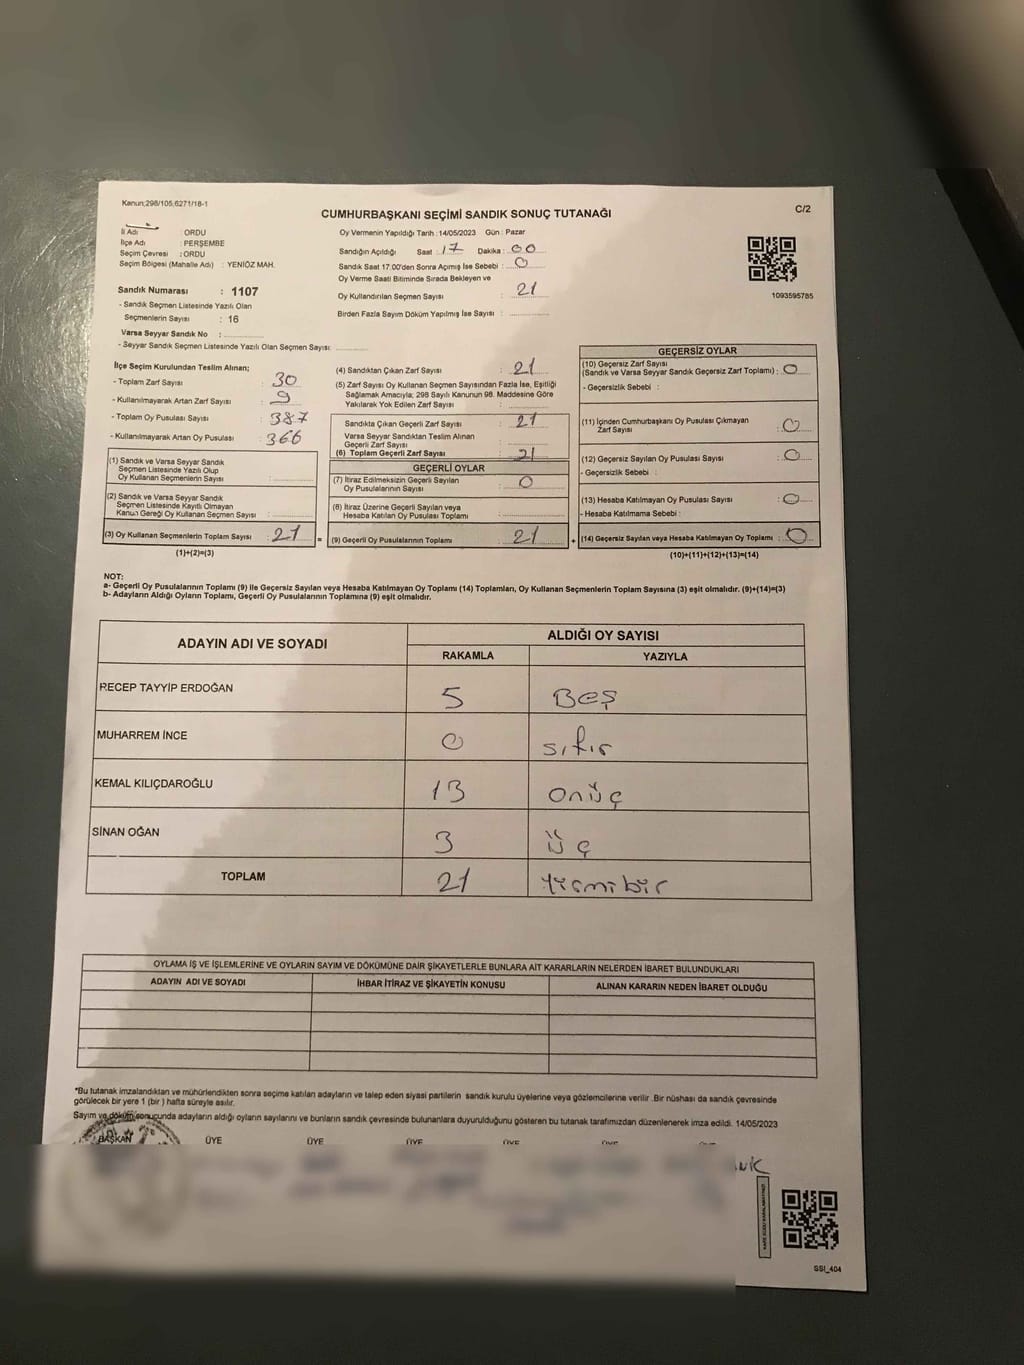 Kanun;298/105,6271/18-1
C/2
CUMHURBAŞKANI SEÇİMİ SANDIK SONUÇ TUTANAĞI
İl Adı : ORDU
İlçe Adı : PERŞEMBE
Seçim Çevresi : ORDU
Seçim Bölgesi (Mahalle Adı) : YENİÖZ MAH.
Sandık Numarası : 1107
- Sandık Seçmen Listesinde Yazılı Olan
Seçmenlerin Sayısı : 16
Varsa Seyyar Sandık No :
- Seyyar Sandık Seçmen Listesinde Yazılı Olan Seçmen Sayısı:
Oy Vermenin Yapıldığı Tarih :14/05/2023 Gün : Pazar
Sandığın Açıldığı Saat : 17 Dakika : 00
Sandık Saat 17.00'den Sonra Açımış İse Sebebi : 0
Oy Verme Saati Bitiminde Sırada Bekleyen ve
Oy Kullandırılan Seçmen Sayısı : 21
Birden Fazla Sayım Döküm Yapılmış İse Sayısı :
1093595785
İlçe Seçim Kurulundan Teslim Alınan;
- Toplam Zarf Sayısı : 30
- Kullanılmayarak Artan Zarf Sayısı : 9
- Toplam Oy Pusulası Sayısı : 387
- Kullanılmayarak Artan Oy Pusulası : 366
(1) Sandık ve Varsa Seyyar Sandık
Seçmen Listesinde Yazılı Olup
Oy Kullanan Seçmenlerin Sayısı :
(2) Sandık ve Varsa Seyyar Sandık
Seçmen Listesinde Kayıtlı Olmayan
Kanun Gereği Oy Kullanan Seçmen Sayısı :
(3) Oy Kullanan Seçmenlerin Toplam Sayısı : 21 =
(1)+(2)=(3)
(4) Sandıktan Çıkan Zarf Sayısı : 21
(5) Zarf Sayısı Oy Kullanan Seçmen Sayısından Fazla İse, Eşitliği
Sağlamak Amacıyla; 298 Sayılı Kanunun 98. Maddesine Göre
Yakılarak Yok Edilen Zarf Sayısı :
Sandıkta Çıkan Geçerli Zarf Sayısı : 21
Varsa Seyyar Sandıktan Teslim Alınan
Geçerli Zarf Sayısı :
(6) Toplam Geçerli Zarf Sayısı : 21
GEÇERLİ OYLAR
(7) İtiraz Edilmeksizin Geçerli Sayılan
Oy Pusulalarının Sayısı : 0
(8) İtiraz Üzerine Geçerli Sayılan veya
Hesaba Katılan Oy Pusulası Toplamı :
(9) Geçerli Oy Pusulalarının Toplamı : 21 +
GEÇERSİZ OYLAR
(10) Geçersiz Zarf Sayısı
(Sandık ve Varsa Seyyar Sandık Geçersiz Zarf Toplamı) : 0
- Geçersizlik Sebebi :
(11) İçinden Cumhurbaşkanı Oy Pusulası Çıkmayan
Zarf Sayısı : 0
(12) Geçersiz Sayılan Oy Pusulası Sayısı : 0
- Geçersizlik Sebebi :
(13) Hesaba Katılmayan Oy Pusulası Sayısı : 0
- Hesaba Katılmama Sebebi :
(14) Geçersiz Sayılan veya Hesaba Katılmayan Oy Toplamı : 0
(10)+(11)+(12)+(13)=(14)
NOT:
a- Geçerli Oy Pusulalarının Toplamı (9) ile Geçersiz Sayılan veya Hesaba Katılmayan Oy Toplamı (14) Toplamları, Oy Kullanan Seçmenlerin Toplam Sayısına (3) eşit olmalıdır. (9)+(14)=(3)
b- Adayların Aldığı Oyların Toplamı, Geçerli Oy Pusulalarının Toplamına (9) eşit olmalıdır.
ADAYIN ADI VE SOYADI ALDIĞI OY SAYISI
RAKAMLA YAZIYLA
RECEP TAYYİP ERDOĞAN 5 BEŞ
MUHARREM İNCE 0 sıfır
KEMAL KILIÇDAROĞLU 13 onüç
SİNAN OĞAN 3 üç
TOPLAM 21 yirmibir
OYLAMA İŞ VE İŞLEMLERİNE VE OYLARIN SAYIM VE DÖKÜMÜNE DAİR ŞİKAYETLERLE BUNLARA AİT KARARLARIN NELERDEN İBARET BULUNDUKLARI
ADAYIN ADI VE SOYADI İHBAR İTİRAZ VE ŞİKAYETİN KONUSU ALINAN KARARIN NEDEN İBARET OLDUĞU
*Bu tutanak imzalandıktan ve mühürlendikten sonra seçime katılan adayların ve talep eden siyasi partilerin sandık kurulu üyelerine veya gözlemcilerine verilir .Bir nüshası da sandık çevresinde
görülecek bir yere 1 (bir ) hafta süreyle asılır.
Sayım ve döküm sonucunda adayların aldığı oyların sayılarını ve bunların sandık çevresinde bulunanlara duyurulduğunu gösteren bu tutanak tarafımızdan düzenlenerek imza edildi. 14/05/2023
BAŞKAN ÜYE ÜYE ÜYE ÜYE ÜYE
SSI_404